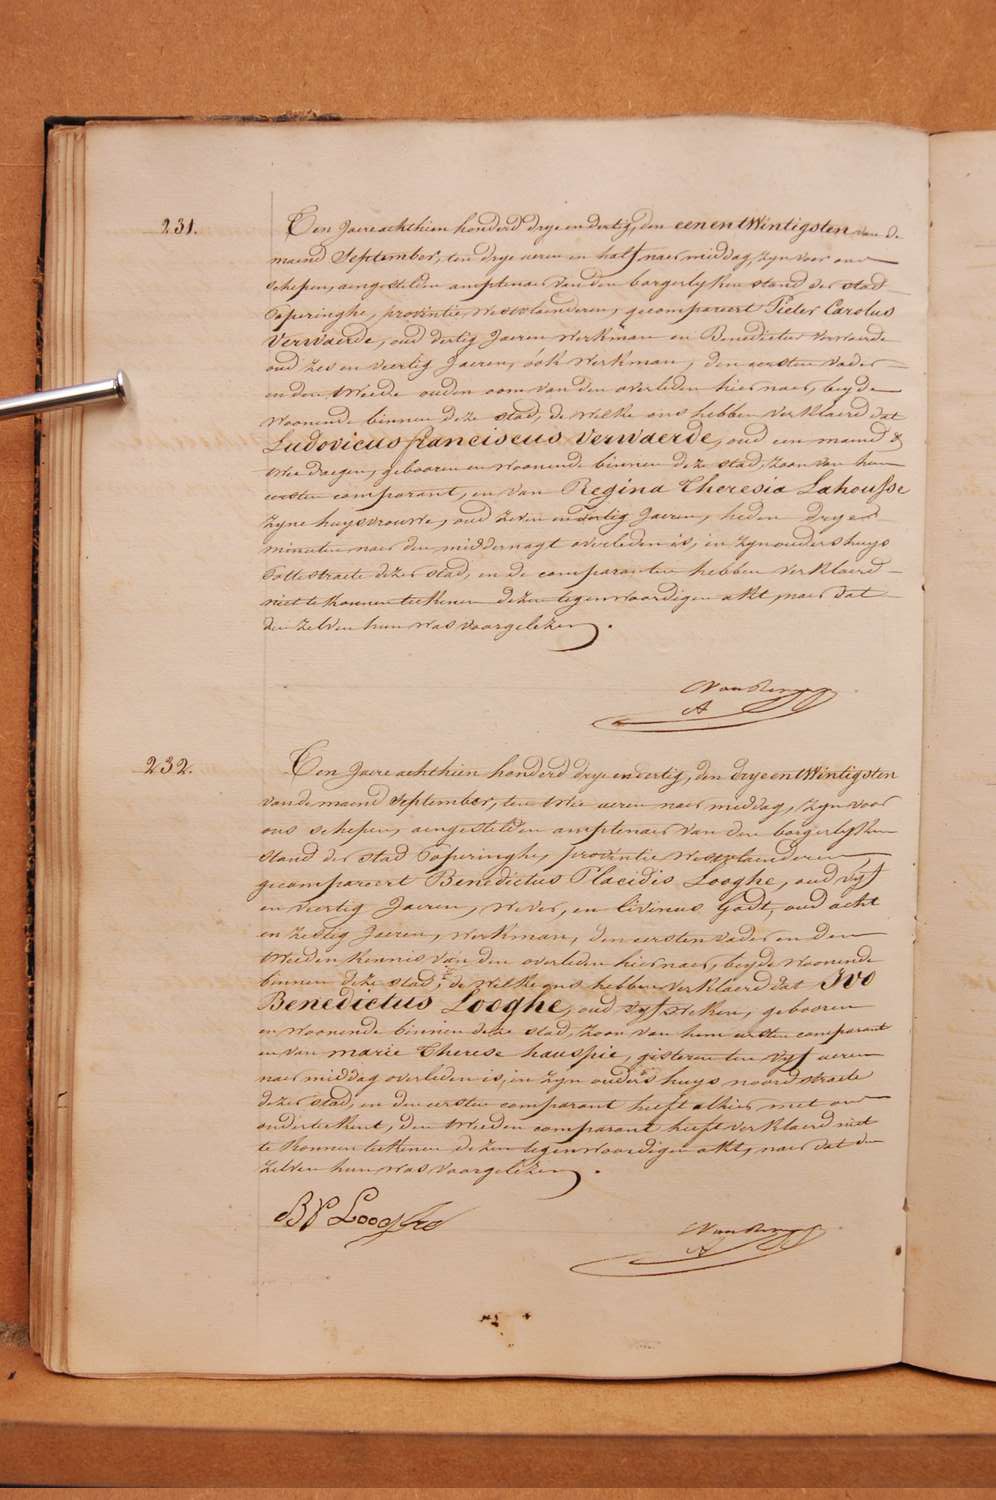 231.
Ten Jaere achthien honderd drye en dertig, den eenentwintigsten van de
maend September, ten drye ueren en half naer middag, zyn voor ons
schepen, aengestelden amptenaer van den borgerlyken stand der stad
Poperinghe, provintie Westvlaenderen, gecompareert Pieter Carolus
Verwaerde, oud dertig Jaeren, Werkman en Benedictus Verwaerde
oud zes en veertig Jaeren, ook Werkman, den eersten vader
en den tweede ouden oom van den overleden hier naer, beyde
Woonende binnen deze stad, de welke ons hebben verklaerd dat
Ludovicus franciscus Verwaerde, oud een maend &
twee daegen, gebooren en woonende binnen deze stad, zoon van hem
eersten comparant, en van Regina Theresia Lahousse
zyne huysvrouwe, oud zeven en dertig Jaeren, heden drye
minuten naer den middernagt overleden is, in zyn ouders huys
Pottestraete dezer stad, en de comparanten hebben verklaerd
niet te konnen teekenen dezen tegenwoordigen akt, naer dat
den zelven hun was voorgelezen.
A
232.
Ten Jaere achthien honderd drye en dertig, den dryeentwintigsten
van de maend September, ten twee ueren naer middag, zyn voor
ons schepen, aengestelden amptenaer van den borgerlyken
stand der stad Poperinghe, provintie Westvlaenderen
gecompareert Benedictus Placidis Looghe, oud vyf
en veertig Jaeren, Wever, en Livinus Godt, oud acht
en zestig Jaeren, Werkman, den eersten vader en den
tweeden kennis van den overleden hier naer, beyde woonende
binnen deze stad; de welke ons hebben verklaerd dat Ivo
Benedictus Looghe, oud vyf weken, gebooren
en woonende binnen deze stad, zoon van hem eersten comparant
en van marie Therese hauspie, gisteren ten vyf ueren
naer middag overleden is, in zyn ouders huys noordstraete
dezer stad, en den eersten comparant heeft alhier met ons
onderteekent, den tweeden comparant heeft verklaerd niet
te konnen teekenen dezen tegenwoordigen akt, naer dat den
zelven hun was voorgelezen.
BP Looghe
A